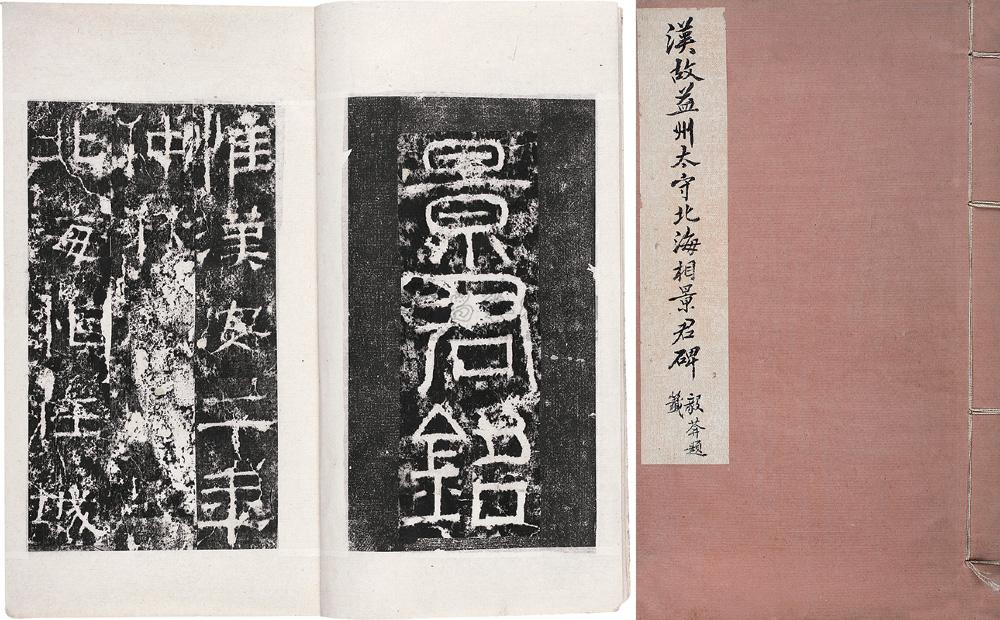 漢故益州太守北海相景君碑
題
籤
景君銘
惟漢安二年
仲秋
北海相任城